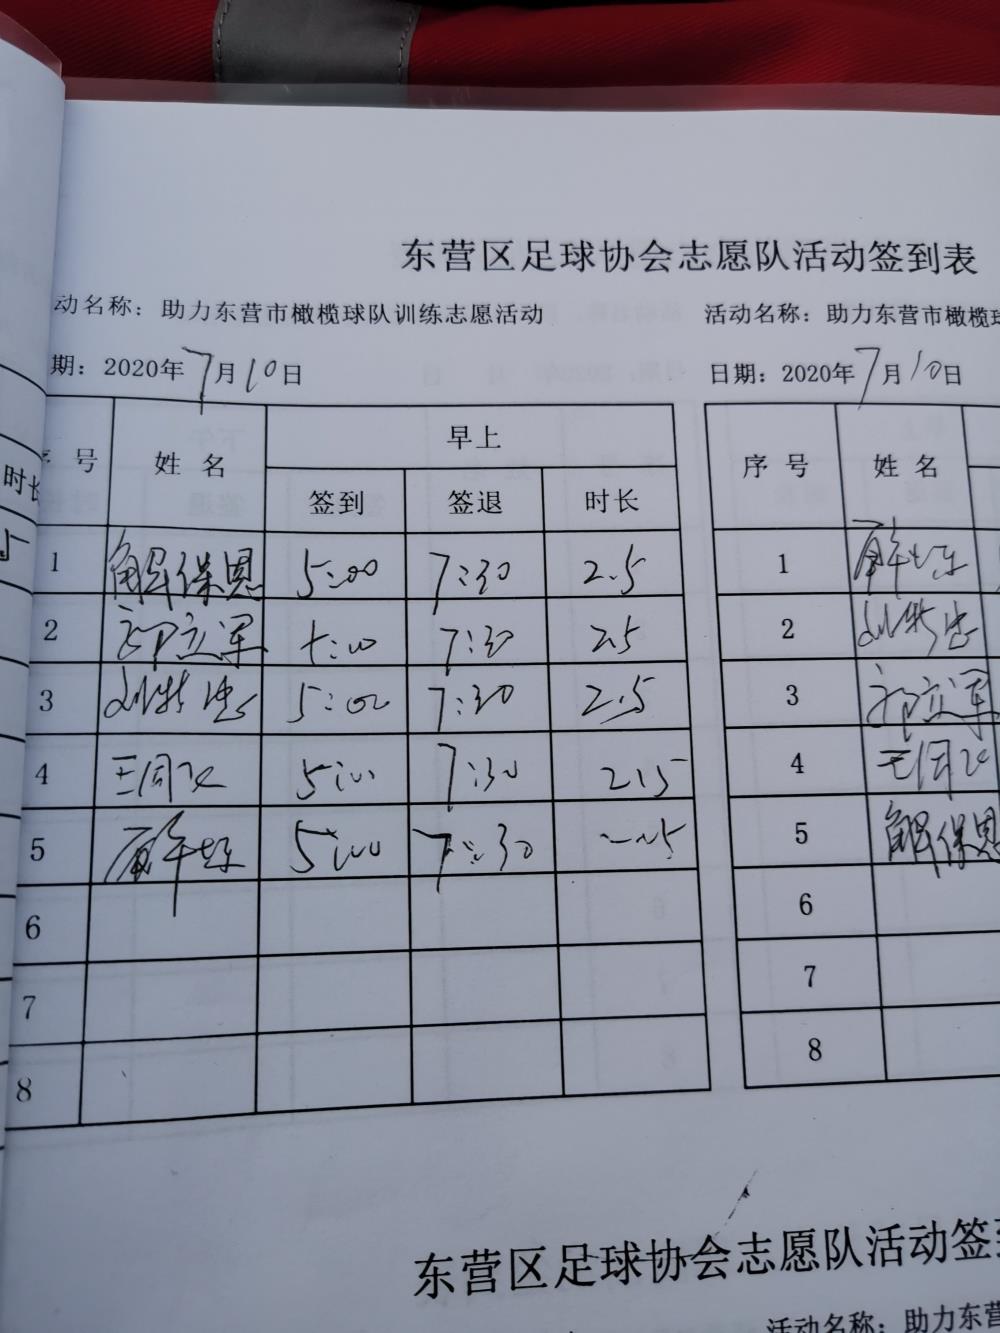 东营区足球协会志愿队活动签到表
动名称：助力东营市橄榄球队训练志愿活动
期：2020年7月10日
号 姓名 早上
签到 签退 时长
1 解保恩 5:00 7:30 2.5
2 立军 7:30 2.5
3 5:00 7:30 2.5
4 王同 5:00 7:30 2.5
5 解 5:00 7:30
6
7
8
活动名称：助力东营市橄榄球
日期：2020年7月10日
序号 姓名
1 解
2
3 立军
4 王同
5 解保恩
6
7
8
时长
5
东营区足球协会志愿队活动签到
活动名称：助力东营